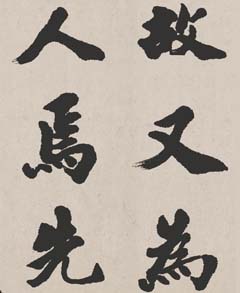 故又為
人馬先